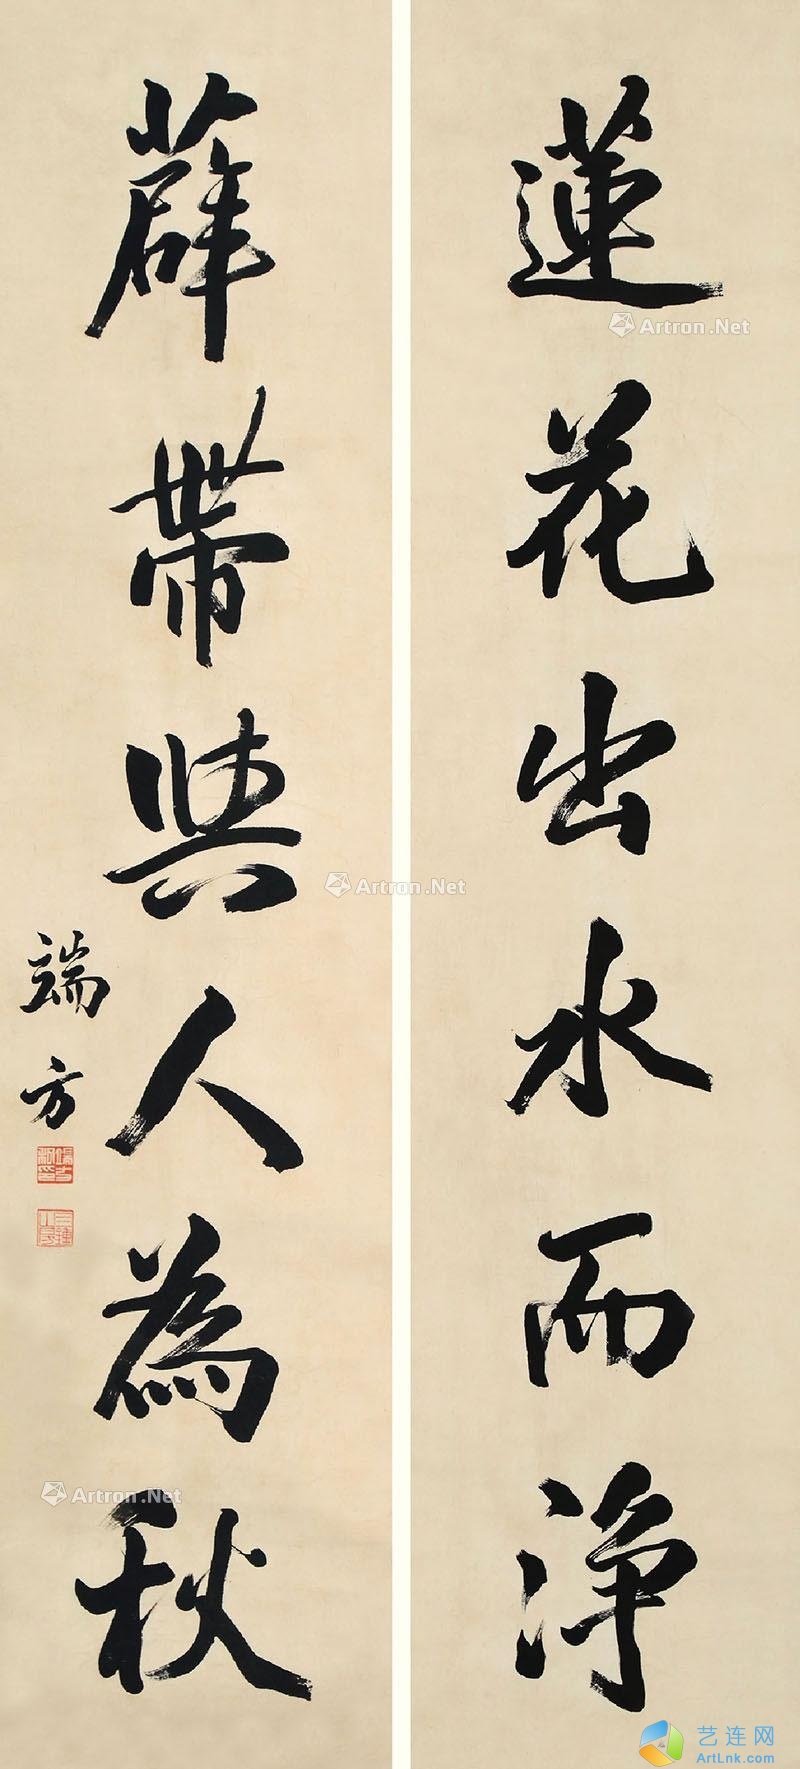 蓮花出水而淨
薜帶與人為秋
端方
Artron.Net
Artron.Net
Artron.Net
艺连网
ArtLnk.com